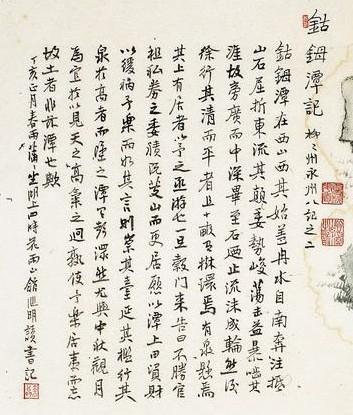 鈷鉧潭記 柳々州永州八記之二
鈷鉧潭在西山西其始蓋冉水自南奔注抵
山石屈折東流其顛委勢峻蕩击益暴嚙其
涯故旁廣而中深畢至石廼止流沫成輪然後
徐行其清而平者且十畝有樹環焉有泉懸焉
其上有居者以予之亟游也一旦款門來告曰不勝官
租私券之委積既芟山而更居愿以潭上田貿財
以緩禍予樂而如其言則崇其臺延其檻行其
泉於高者而墜之潭有聲潀然尤與中秋觀月
為宜於以見天之高氣之迥孰使予樂居夷而忘
故土者非茲潭也歟
丁亥正月春雨瀟々坐明上四時花雨山館 明讀書記